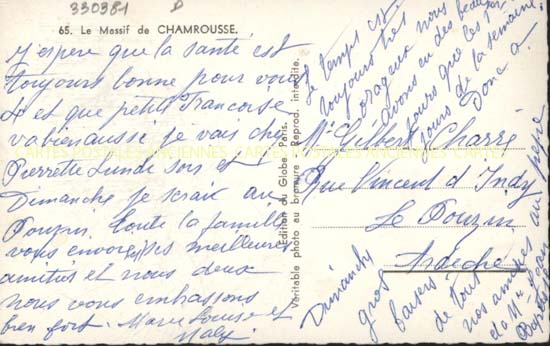 330381
65. Le Massif de CHAMROUSSE.
J'espere que la santé est
toujours bonne pour vous
et que petite Francoise
va bien aussi je vais chez
Pierrette Lundi soir et
Dimanche je serais au
Pouzin. toute la famille
vous envoies ses meilleures
amitiés et nous deux
nous vous embrassons
bien fort. Marie Louise et
CARTES POSTALES ANCIENNES
Edition du Globe, Paris.
Véritable photo au bromure - Reprod. interdite.
Mr Gilbert Charré
Rue Vincent d'Indy
Le Pouzin
Ardèche
le temps est
toujours très
orageux nous
avons eu des beaux
jours que les
jours de la semaine.
Donc a
Dimanche
gros
baisers
de tous
nos amitiés au
de Mr Jean